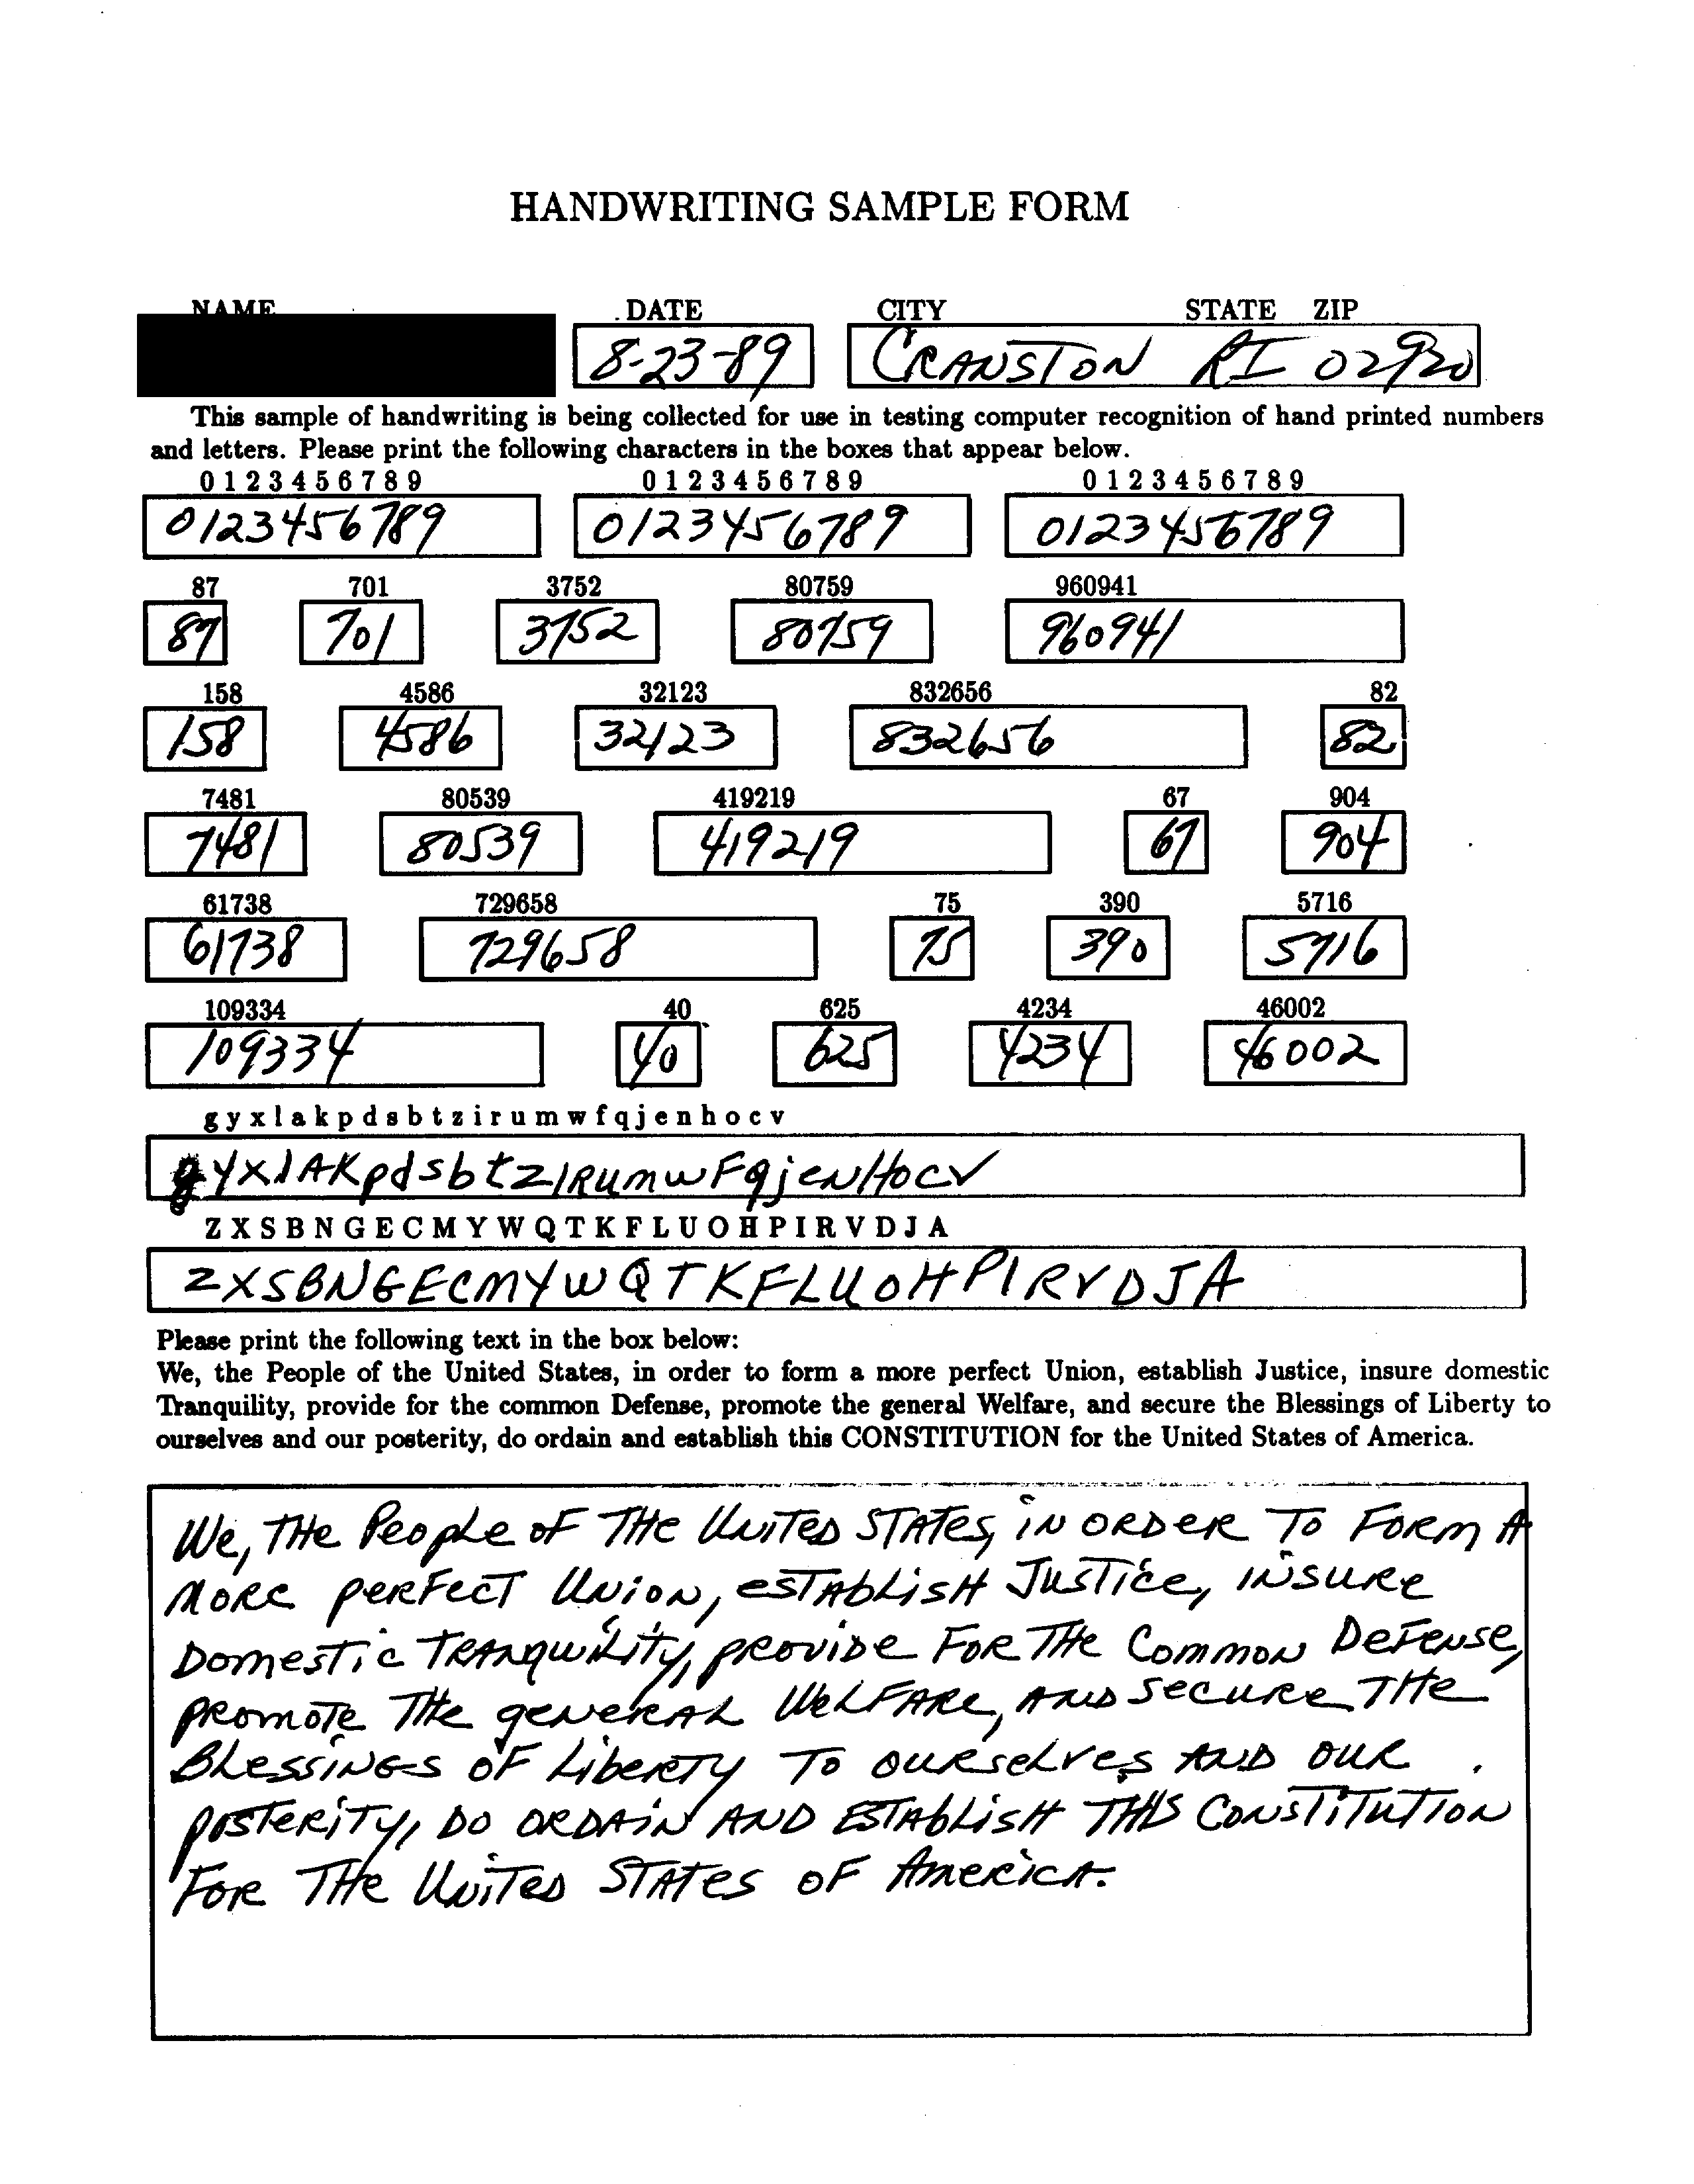 HANDWRITING SAMPLE FORM
NAME DATE CITY STATE ZIP
8-23-89 CRANSTON RI 02920
This sample of handwriting is being collected for use in testing computer recognition of hand printed numbers
and letters. Please print the following characters in the boxes that appear below.
0 1 2 3 4 5 6 7 8 9 0 1 2 3 4 5 6 7 8 9 0 1 2 3 4 5 6 7 8 9
0123456789 0123456789 0123456789
87 701 3752 80759 960941
87 701 3752 80759 960941
158 4586 32123 832656 82
158 4586 32123 832656 82
7481 80539 419219 67 904
7481 80539 419219 67 904
61738 729658 75 390 5716
61738 729658 75 390 5716
109334 40 625 4234 46002
109334 40 625 4234 46002
g y x l a k p d s b t z i r u m w f q j e n h o c v
gyxlAKpdsbtzIRumwFqjeNHocv
Z X S B N G E C M Y W Q T K F L U O H P I R V D J A
ZXSBNGECMYWQTKFLUOHPIRVDJA
Please print the following text in the box below:
We, the People of the United States, in order to form a more perfect Union, establish Justice, insure domestic
Tranquility, provide for the common Defense, promote the general Welfare, and secure the Blessings of Liberty to
ourselves and our posterity, do ordain and establish this CONSTITUTION for the United States of America.
We, THe PeopLe oF THe UNiTeD STATes, iN ORDeR To FoRm A
MoRe peRFecT UNioN, esTAbLisH JusTice, iNsuRe
DomesTic TRANquiLiTy, pRoviDe FoR THe CommoN DeFeNse,
pRomoTe THe geNeRAL WeLFARe, AND secuRe THe
BLessiNGs oF LibeRTy To ouRseLves AND ouR
posTeRiTy, Do ORDAiN AND ESTAbLisH THIS CoNsTiTuTioN
FoR THe UNiTeD STATes oF AmeRicA.